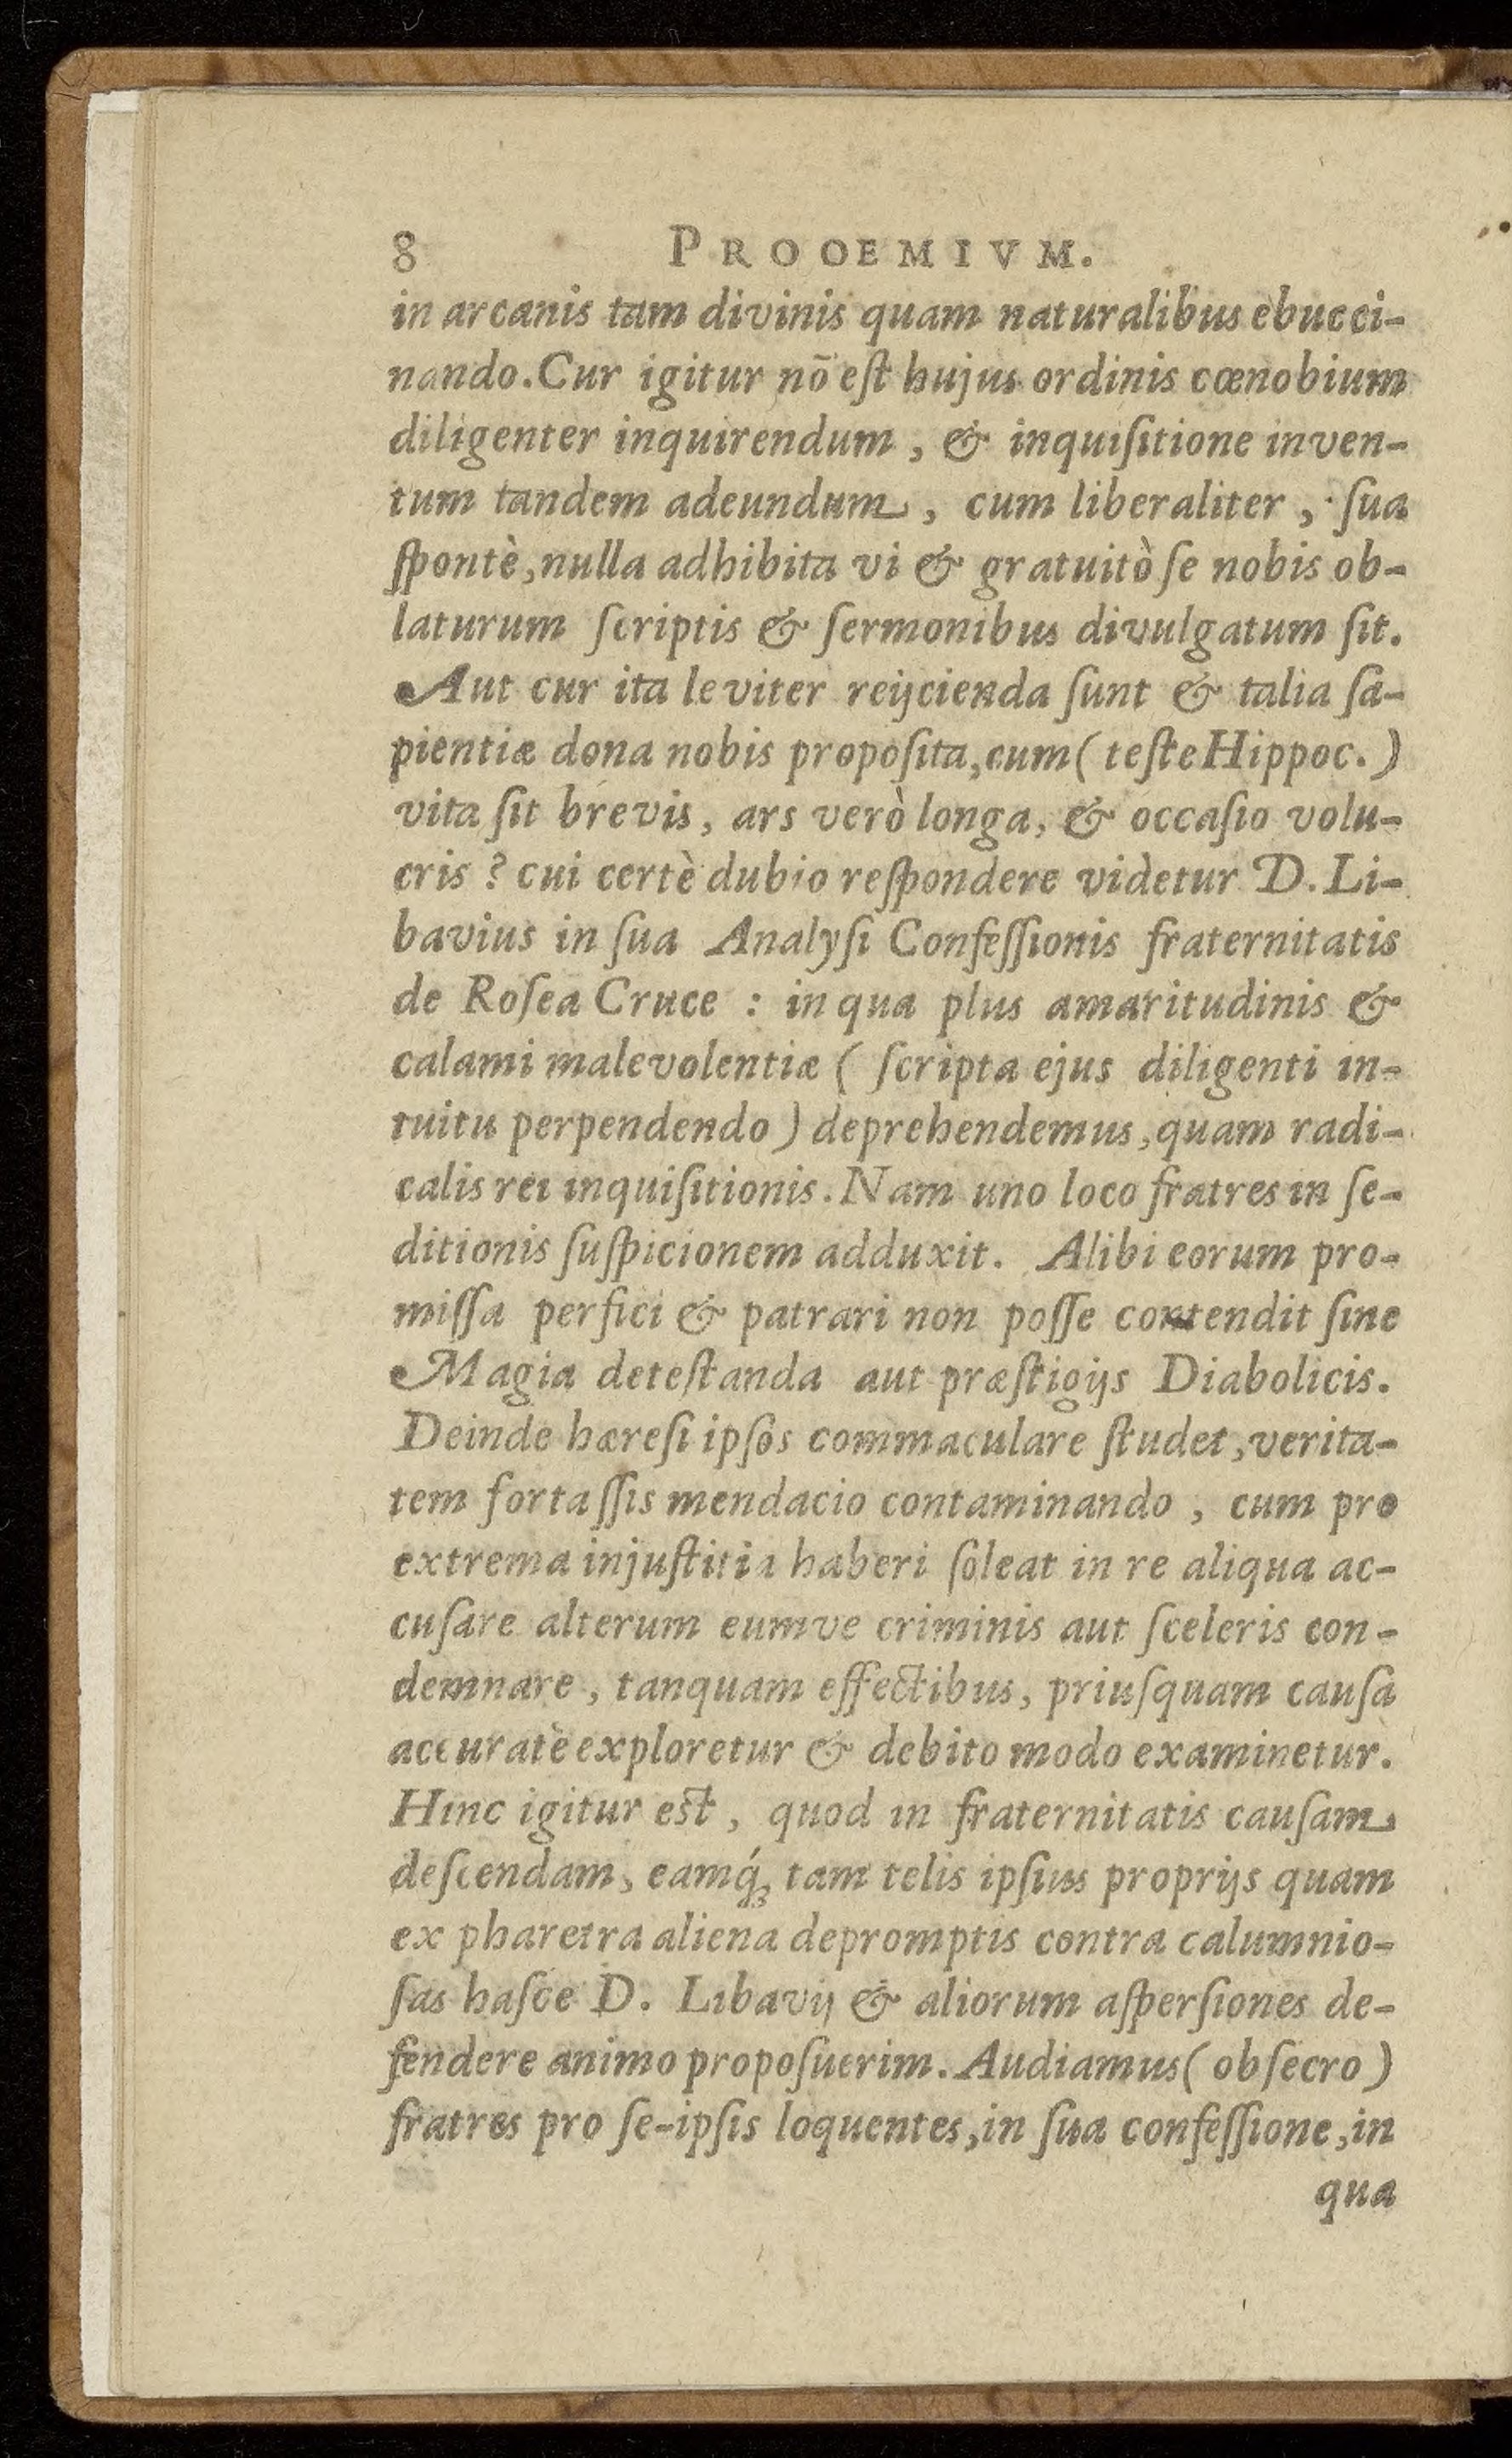 8 PROOEMIVM.
in arcanis tam divinis quam naturalibus ebucci-
nando. Cur igitur nō eſt hujus ordinis cœnobium
diligenter inquirendum, & inquiſitione inven-
tum tandem adeundum, cum liberaliter, ſua
ſpontè, nulla adhibita vi & gratuitò ſe nobis ob-
laturum ſcriptis & ſermonibus divulgatum ſit.
Aut cur ita leviter reijcienda ſunt & talia ſa-
pientiæ dona nobis propoſita, cum (teſte Hippoc.)
vita ſit brevis, ars verò longa, & occaſio volu-
cris? cui certè dubio reſpondere videtur D. Li-
bavius in ſua Analyſi Confeſſionis fraternitatis
de Roſea Cruce : in qua plus amaritudinis &
calami malevolentiæ (ſcripta ejus diligenti in-
tuitu perpendendo) deprehendemus, quam radi-
calis rei inquiſitionis. Nam uno loco fratres in ſe-
ditionis ſuſpicionem adduxit. Alibi eorum pro-
miſſa perfici & patrari non poſſe contendit ſine
Magia deteſtanda aut præſtigijs Diabolicis.
Deinde hæreſi ipſos commaculare ſtudet, verita-
tem fortaſſis mendacio contaminando, cum pro
extrema injuſtitia haberi ſoleat in re aliqua ac-
cuſare alterum eumve criminis aut ſceleris con-
demnare, tanquam effectibus, priuſquam cauſa
accuratè exploretur & debito modo examinetur.
Hinc igitur eſt, quod in fraternitatis cauſam
deſcendam, eamq́ꝫ tam telis ipſius proprijs quam
ex pharetra aliena depromptis contra calumnio-
ſas haſce D. Libavij & aliorum aſperſiones de-
fendere animo propoſuerim. Audiamus (obſecro)
fratres pro ſe-ipſis loquentes, in ſua confeſſione, in
qua